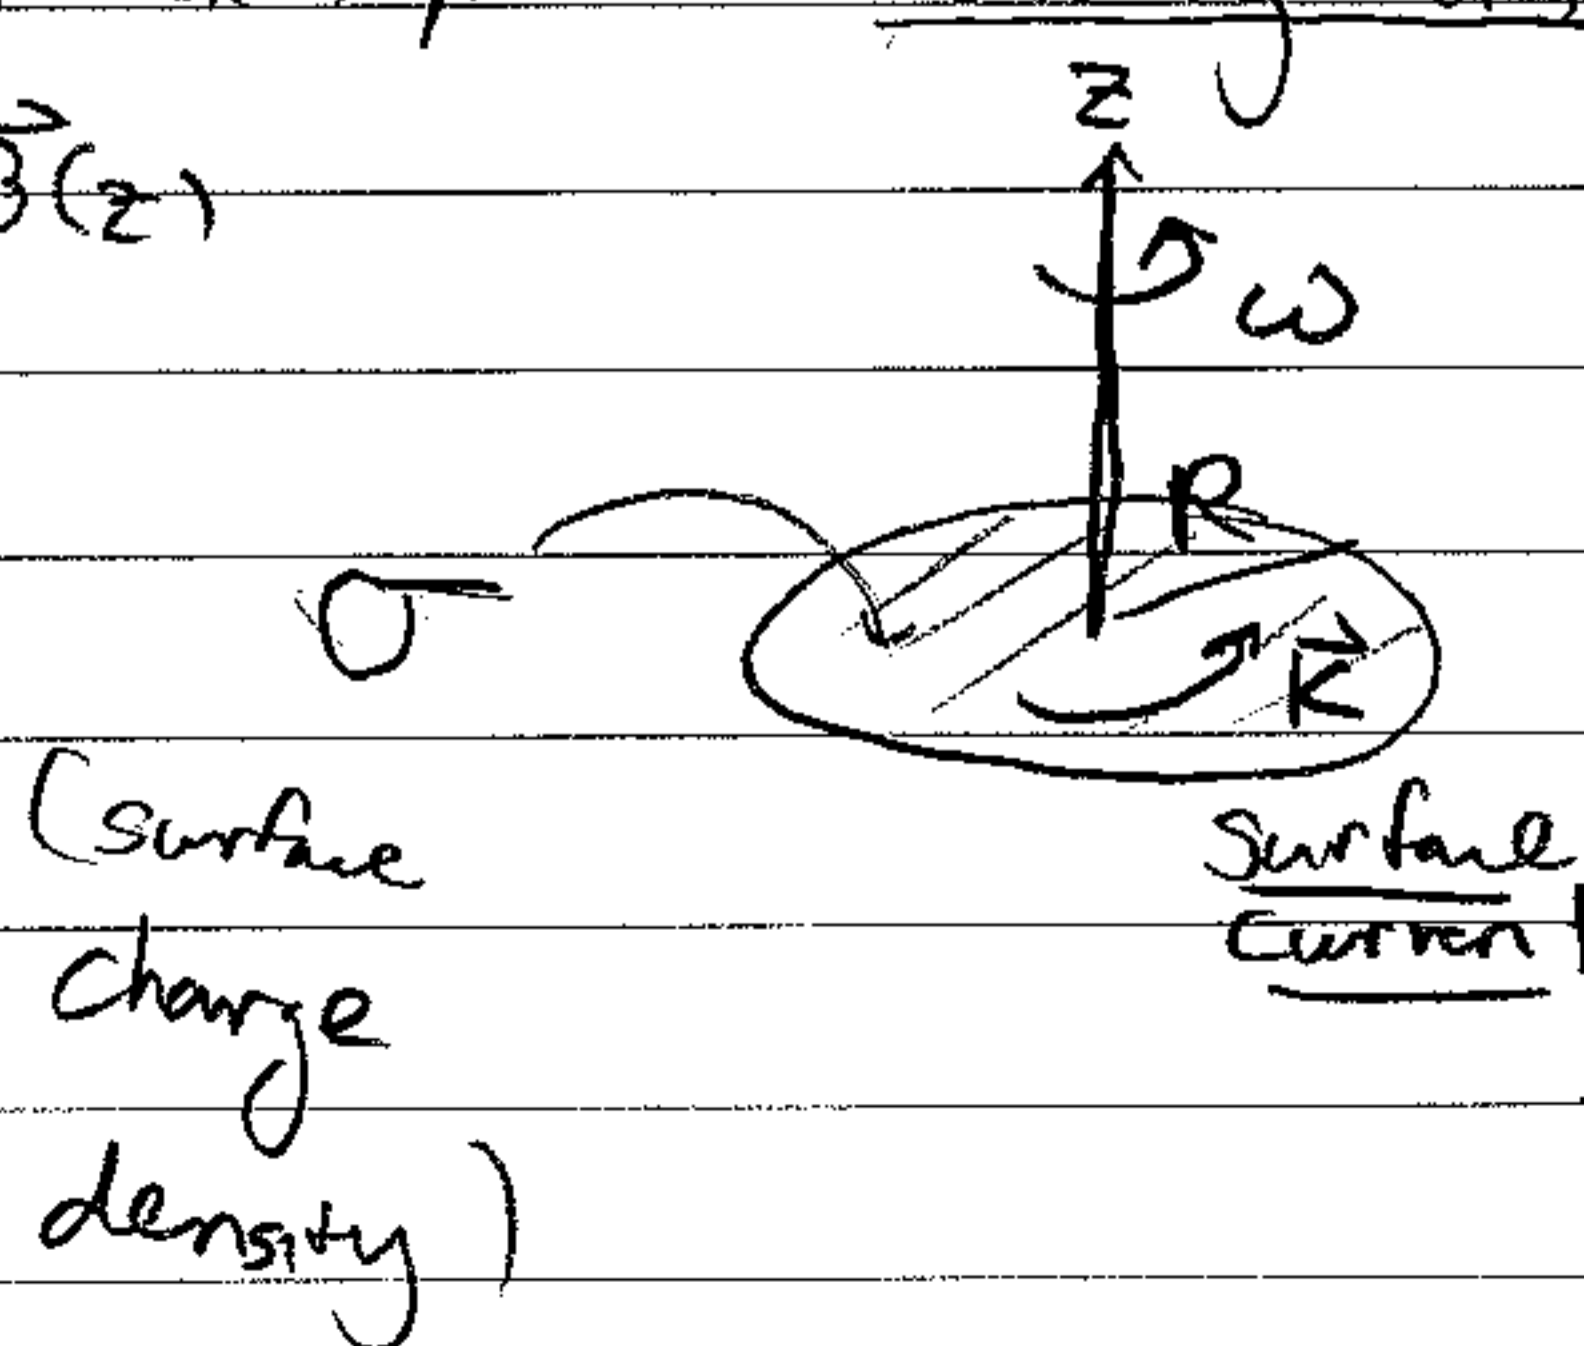 z
B⃗(z)
ω
R
σ
K⃗
(surface
charge
density)
surface
current